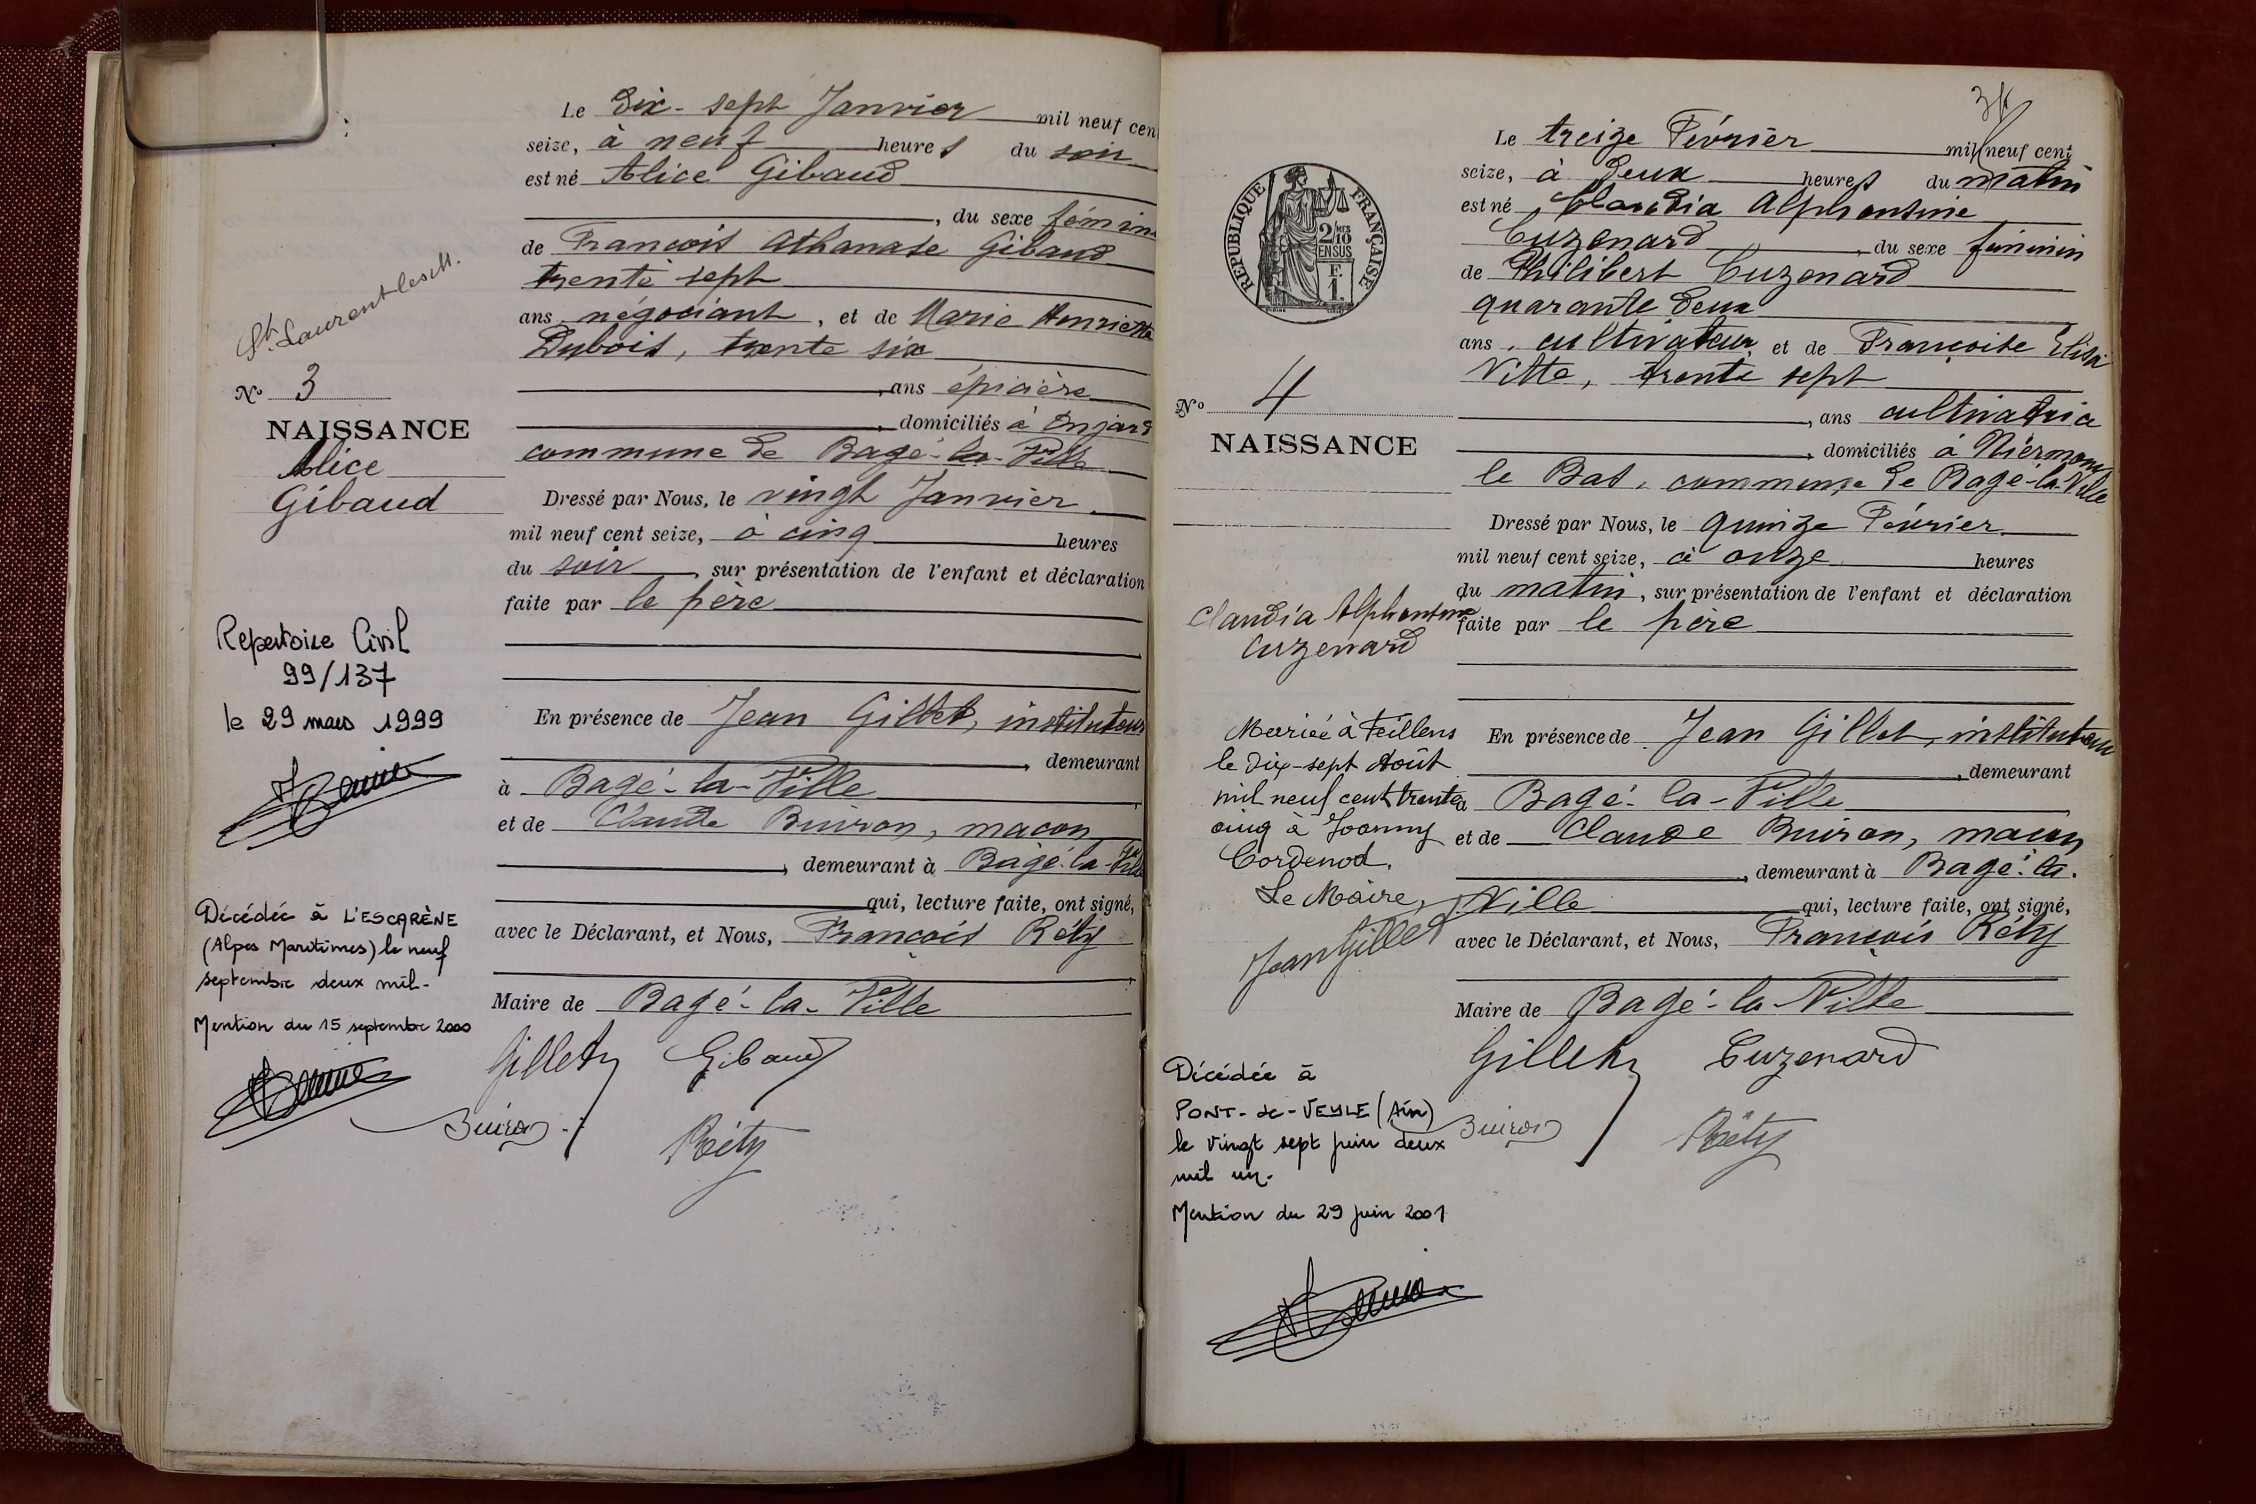 Le Dix-sept Janvier mil neuf cen
seize, à neuf heures du soir
est né Alice Gibaud
, du sexe féminin
de François Athanase Gibaud
trente sept
ans négociant, et de Marie Henriette
Dubois, trente six
, ans épicière
, domiciliés à
commune de Bagé-la-Ville
Dressé par Nous, le vingt Janvier
mil neuf cent seize, à cinq heures
du soir, sur présentation de l'enfant et déclaration
faite par le père
En présence de Jean Gillet, instituteur
, demeurant
à Bagé-la-Ville
et de Claude Buiron, maçon
, demeurant à Bagé-la-Ville
qui, lecture faite, ont signé,
avec le Déclarant, et Nous, François Réty
Maire de Bagé-la-Ville
Gillet Gibaud
Buiron
Réty
St Laurent les M.
No 3
NAISSANCE
Alice
Gibaud
Repertoire Civil
99/137
le 29 mars 1999
Décédée à L'ESCARÈNE
(Alpes Maritimes) le neuf
septembre deux mil-
Mention du 15 septembre 2000
Le treize Février mil neuf cent
seize, à deux heures du matin
est né Claudia Alphonsine
Cuzenard, du sexe féminin
de Philibert Cuzenard
quarante deux
ans, cultivateur, et de Françoise Elisa
Vitte, trente sept
, ans cultivatrice
, domiciliés à
le Bas, commune de Bagé-la-Ville
Dressé par Nous, le quinze Février
mil neuf cent seize, à onze heures
du matin, sur présentation de l'enfant et déclaration
faite par le père
En présence de Jean Gillet, instituteur
, demeurant
à Bagé-la-Ville
et de Claude Buiron, maçon
, demeurant à Bagé-la-
Ville qui, lecture faite, ont signé,
avec le Déclarant, et Nous, François Réty
Maire de Bagé-la-Ville
Gillet Cuzenard
Buiron Réty
RÉPUBLIQUE FRANÇAISE
2/10 MES
EN SUS
F.
1.
No 4
NAISSANCE
Claudia Alphonsine
Cuzenard
Mariée à Feillens
le dix-sept Août
mil neuf cent trente
cinq à Joanny
Cordenod.
Le Maire,
Jean Gillet
Décédée à
PONT-de-VEYLE (Ain)
le vingt sept juin deux
mil un.
Mention du 29 juin 2001